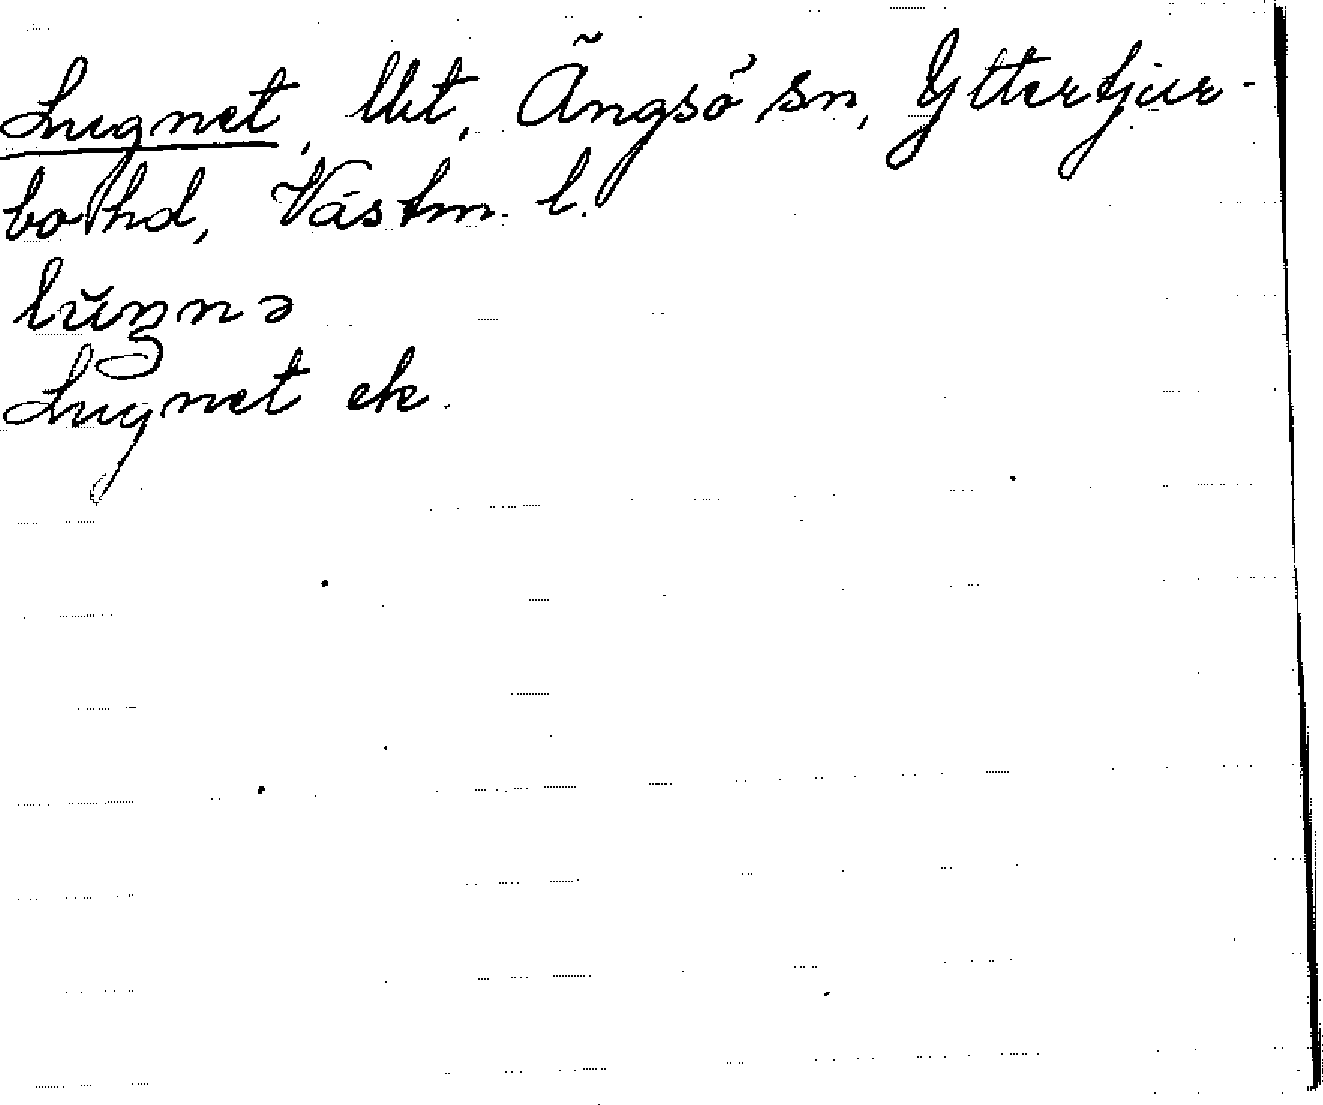 Lugnet, lht, Ängsö sn, Yttertjur-
bo hd, Västm. l.
lŭŋnə
Lugnet ek.